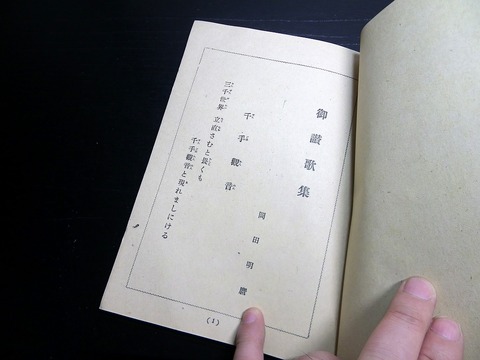 御讃歌集
千手観音
岡田明麿
三千世界立直さむと長くも
千手観音と現れましにける
(1)